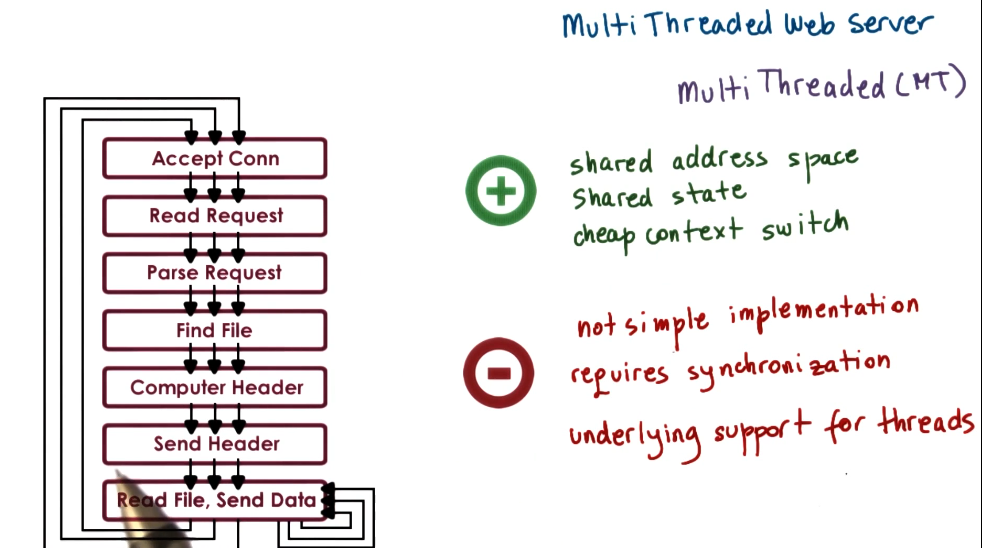 Multi Threaded Web Server
Multi Threaded (MT)
Accept Conn
Read Request
Parse Request
Find File
Computer Header
Send Header
Read File, Send Data
shared address space
shared state
cheap context switch
not simple implementation
requires synchronization
underlying support for threads